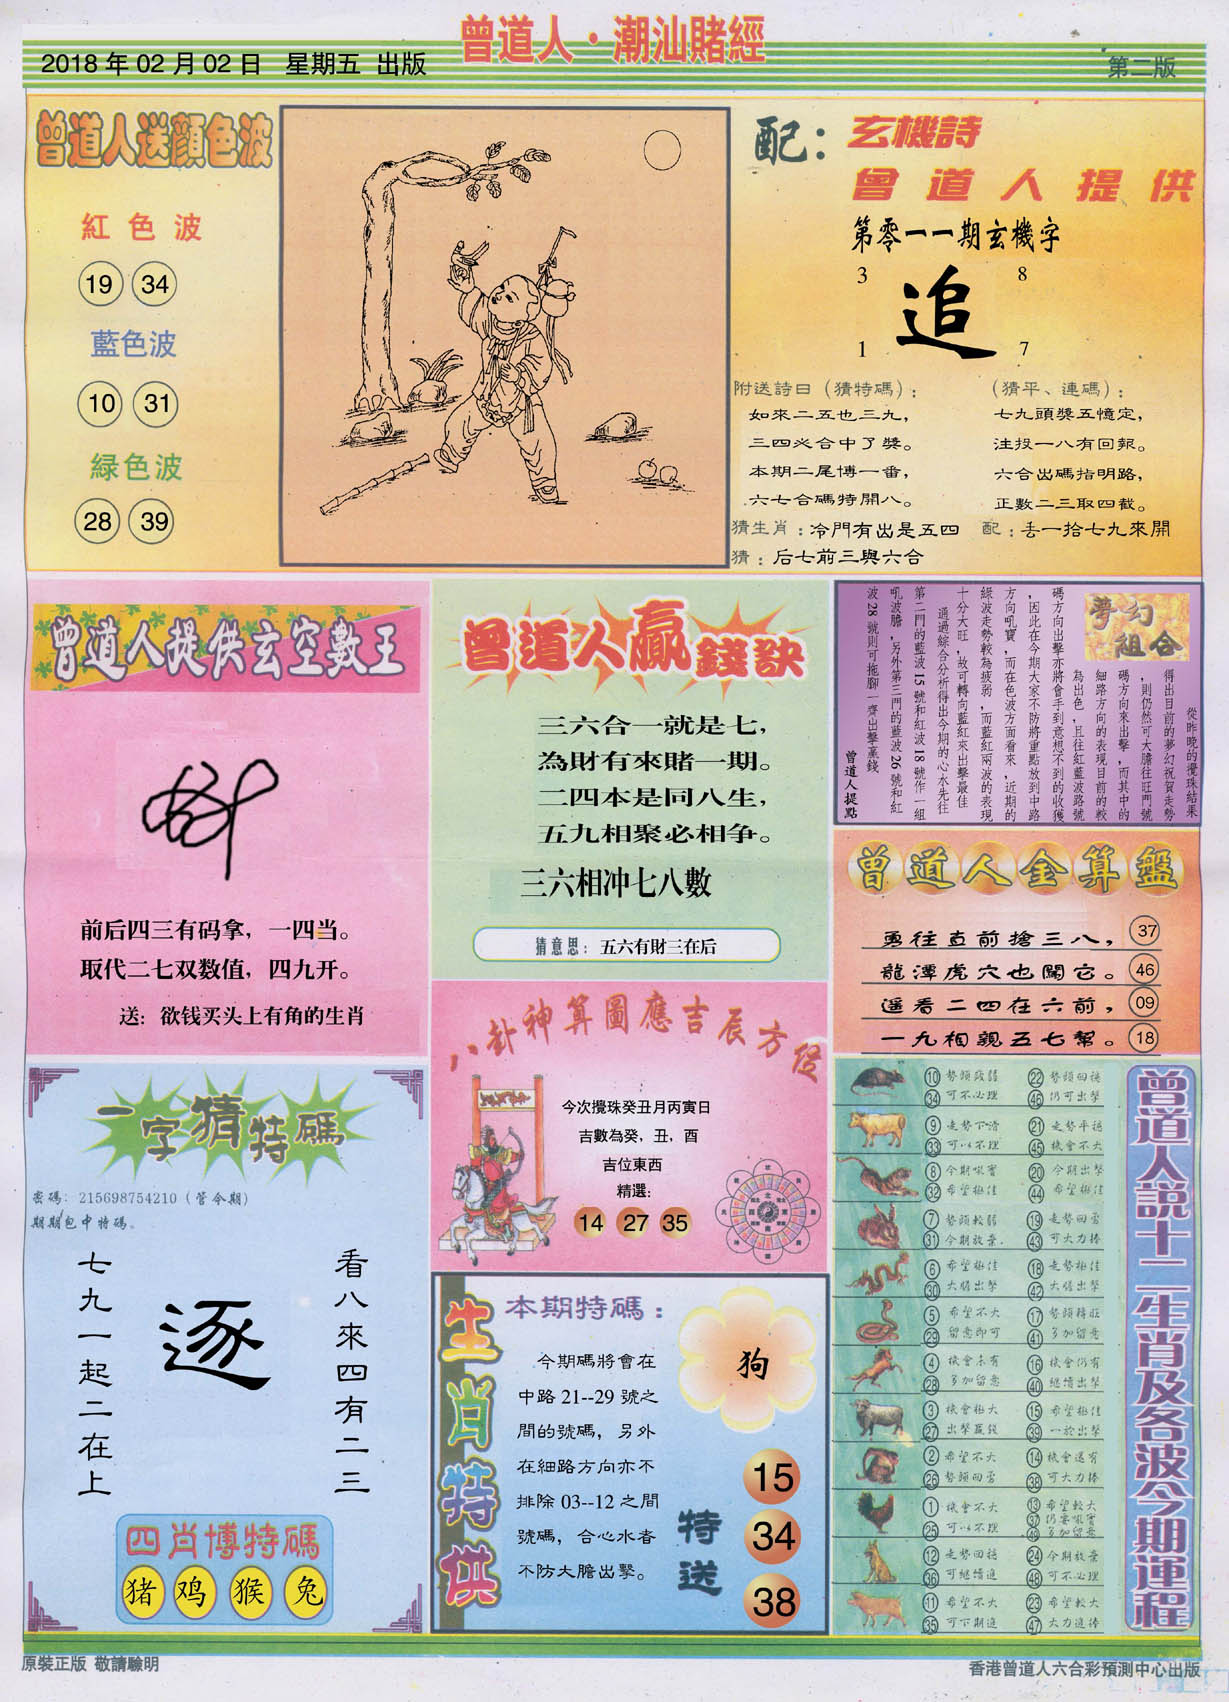 曾道人·潮汕賭經
2018年02月02日 星期五 出版
第二版
曾道人送顔色波
紅色波
19 34
藍色波
10 31
緑色波
28 39
配：玄機詩
曾道人提供
第零一一期玄機字
3 8
追
1 7
附送詩曰（猜特碼）：
如來二五也三九，
三四必合中了獎。
本期二尾博一番，
六七合碼特開八。
（猜平、連碼）：
七九頭獎五憶定，
注投一八有回報。
六合出碼指明路，
正數二三取四截。
猜生肖：冷門有出是五四
配：丢一拾七九來開
猜：后七前三與六合
曾道人提供玄空數王
前后四三有码拿，一四当。
取代二七双数值，四九开。
送：欲钱买头上有角的生肖
曾道人贏錢訣
三六合一就是七，
為財有來賭一期。
二四本是同八生，
五九相聚必相争。
三六相冲七八數
猜意思：五六有財三在后
夢幻組合
從昨晚的攪珠結果
得出目前的夢幻祝賀走勢
，則仍然可大膽往旺門號
碼方向來出擊，而其中的
細路方向的表現目前的較
為出色，且往紅藍波路號
碼方向出擊亦將會手到意想不到的收獲
，因此在今期大家不防將重點放到中路
方向吼寶，而在色波方面看來，近期的
綠波走勢較為疲弱，而藍紅兩波的表現
十分大旺，故可轉向藍紅來出擊最佳
通過綜合分析得出今期的心水先往
第二門的藍波15號和紅波18號作一組
吼波膽，另外第三門的藍波26號和紅
波28號則可拖腳一齊出擊贏錢
曾道人提點
曾道人金算盤
勇往直前搶三八， 37
龍潭虎穴也闖它。 46
遥看二四在六前， 09
一九相親五七幫。 18
八卦神算圖應吉辰方位
今次攪珠癸丑月丙寅日
吉數為癸，丑，酉
吉位東西
精選：
14 27 35
一字猜特碼
密碼：215698754210（管令期）
期期包中特碼。
看八來四有二三
逐
七九一起二在上
四肖博特碼
猪 鸡 猴 兔
生肖特供
本期特碼：
今期碼將會在
中路21--29號之
間的號碼，另外
在細路方向亦不
排除03--12之間
號碼，合心水者
不防大膽出擊。
狗
特送
15
34
38
曾道人説十二生肖及各波今期運程
10 勢頭疲弱 22 勢頭回穩
34 可不必理 46 仍可出擊
9 走勢下滑 21 走勢平穩
33 可以不理 45 機會不大
8 今期吼寶 20 今期出擊
32 希望極佳 44 希望極佳
7 勢頭較弱 19 走勢回勇
31 今期放棄 43 可大力捧
6 希望極佳 18 走勢極佳
30 大膽出擊 42 大膽出擊
5 希望不大 17 勢頭轉旺
29 留意即可 41 多加留意
4 機會未有 16 機會仍有
28 多加留意 40 繼續出擊
3 機會極大 15 希望極佳
27 出擊贏錢 39 一於出擊
2 希望不大 14 機會還有
26 勢頭回勇 38 可大力捧
1 機會不大 13 希望較大
25 可以不理 37 仍要吼寶
49 多加留意
12 走勢回穩 24 今期放棄
36 可繼續追 48 可不必理
11 希望不大 23 希望較大
35 可下期追 47 大力追捧
原裝正版 敬請驗明
香港曾道人六合彩預測中心出版